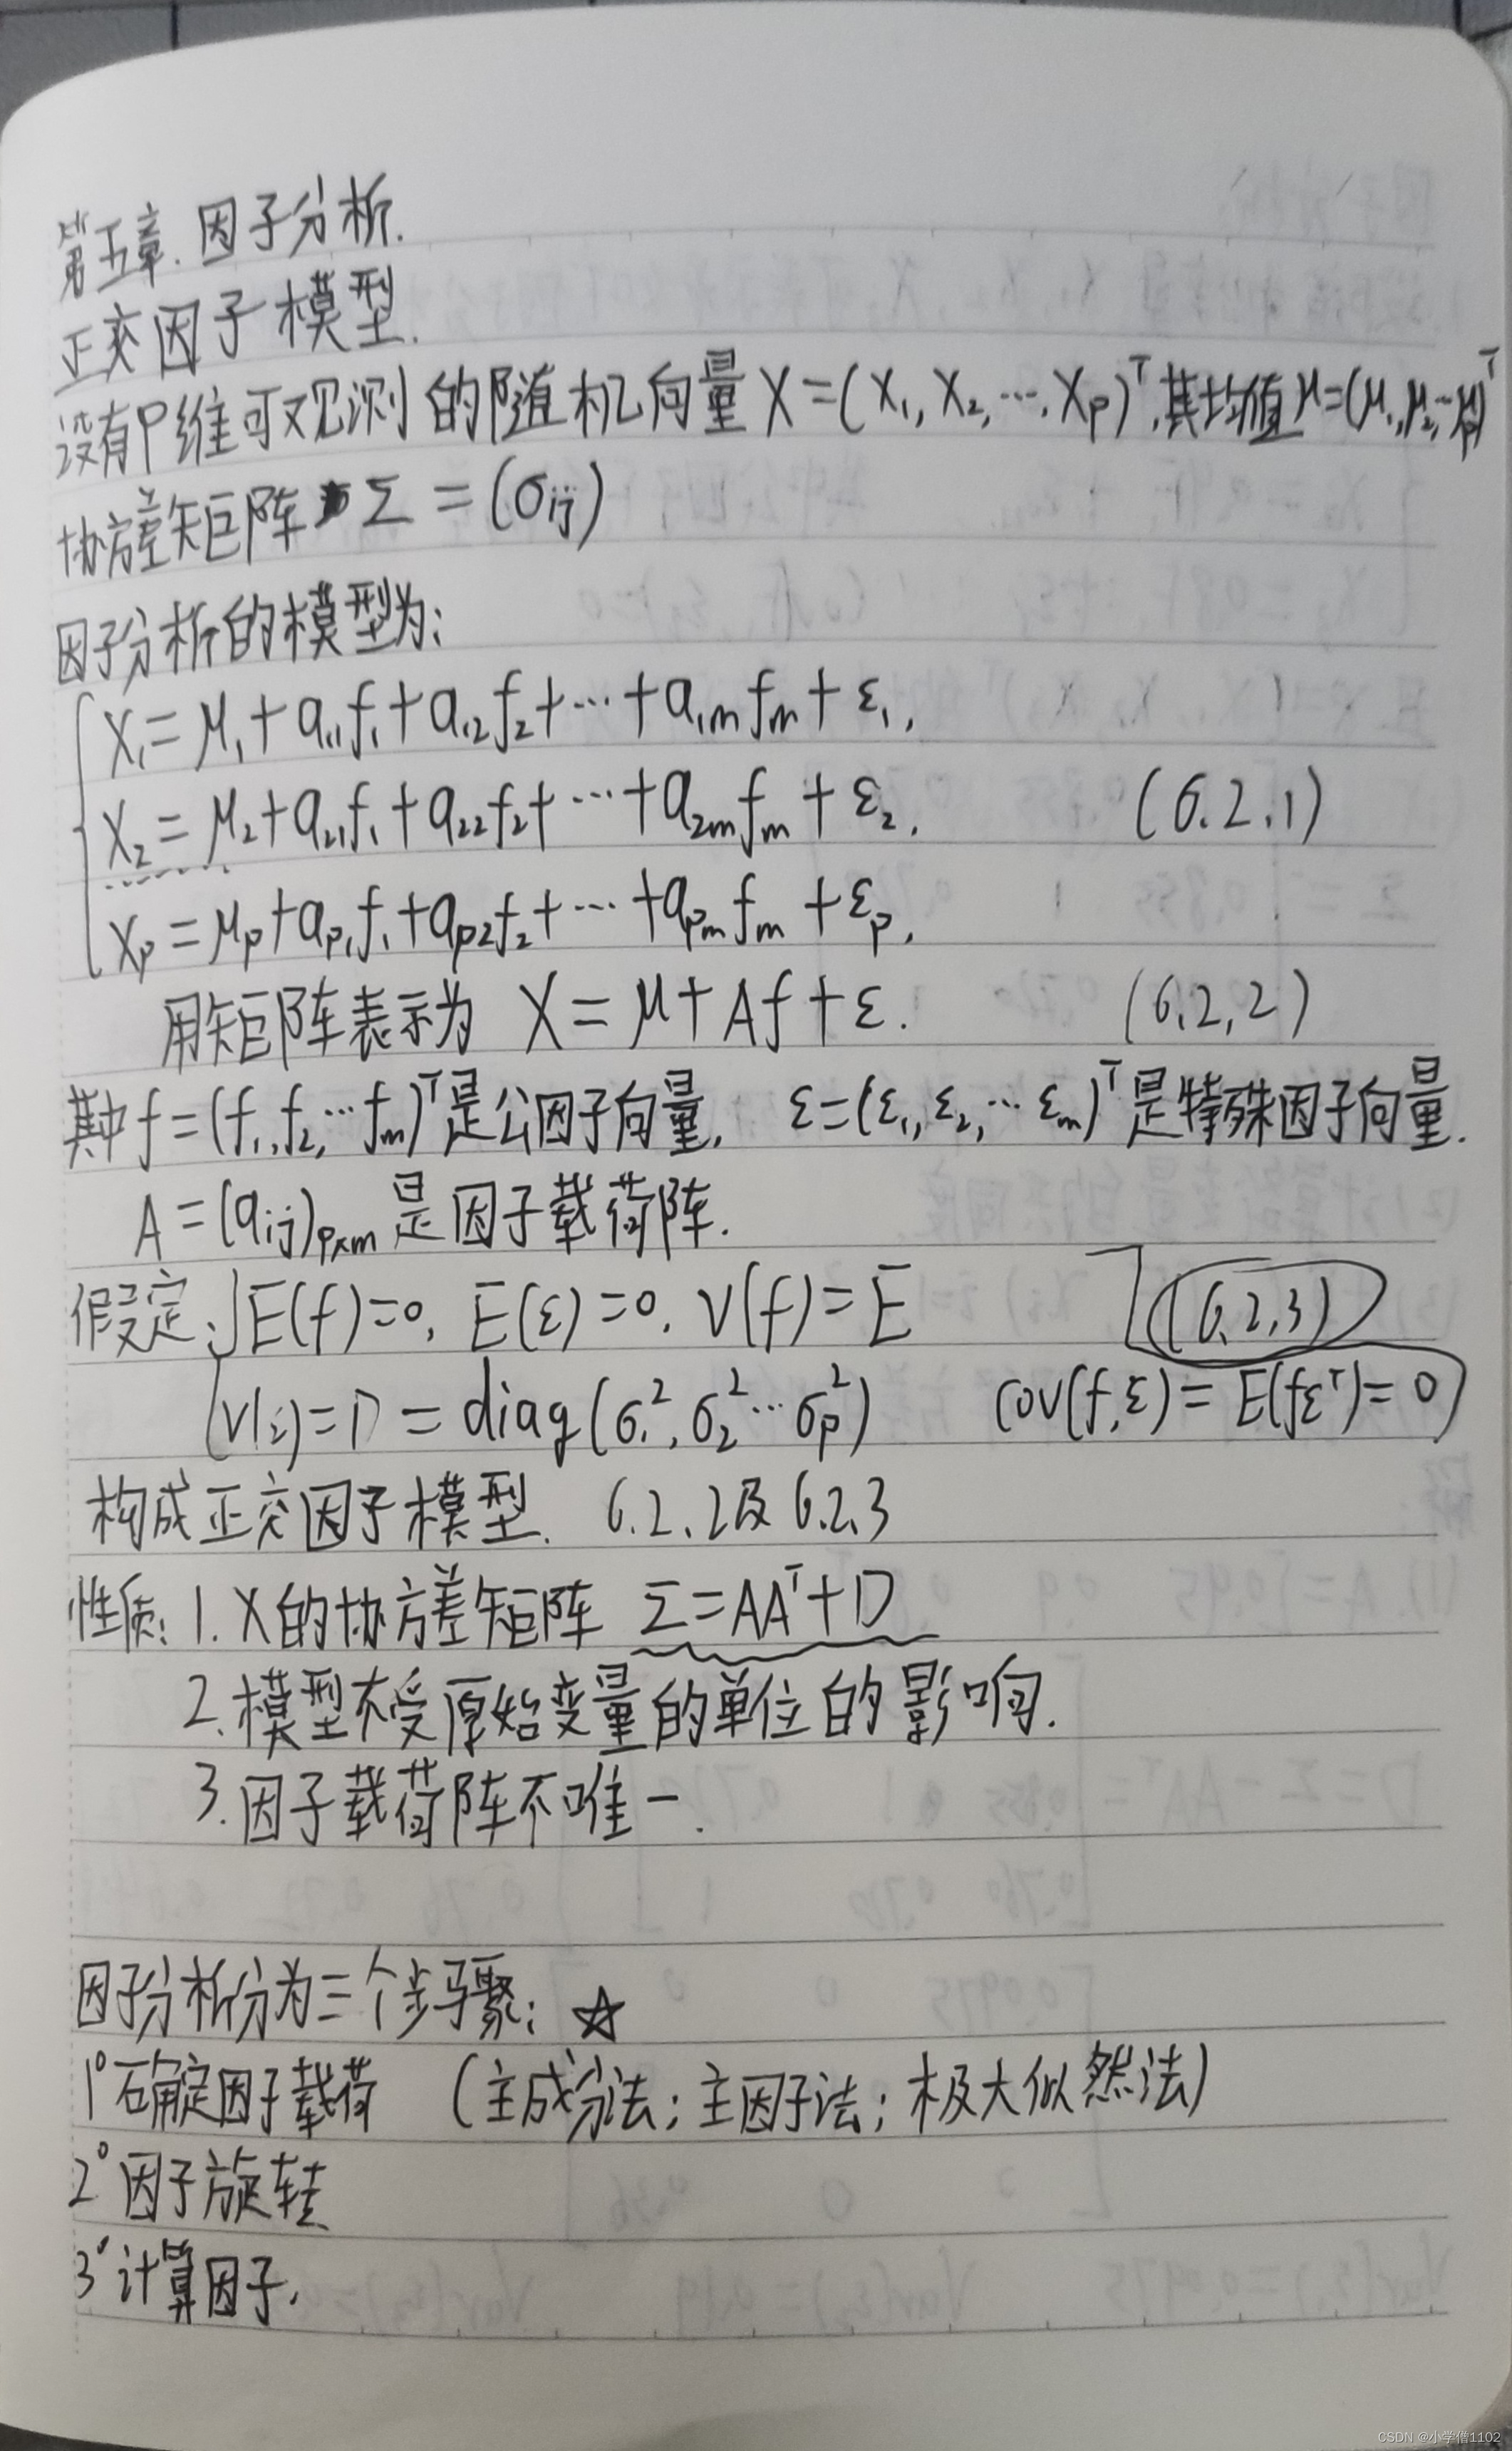 第五章.因子分析.
正交因子模型.
设有P维可观测的随机向量X=(X₁,X₂,…,Xₚ)ᵀ,其均值μ=(μ₁,μ₂,…μₚ)ᵀ
协方差矩阵Σ=(σij)
因子分析的模型为:
X₁=μ₁+a₁₁f₁+a₁₂f₂+…+a₁ₘfₘ+ε₁,
X₂=μ₂+a₂₁f₁+a₂₂f₂+…+a₂ₘfₘ+ε₂, (6.2.1)
Xₚ=μₚ+aₚ₁f₁+aₚ₂f₂+…+aₚₘfₘ+εₚ,
用矩阵表示为 X=μ+Af+ε. (6.2.2)
其中f=(f₁,f₂,…fₘ)ᵀ是公因子向量, ε=(ε₁,ε₂,…εₘ)ᵀ是特殊因子向量.
A=(aij)ₚₓₘ是因子载荷阵.
假定:E(f)=0, E(ε)=0, V(f)=E (6.2.3)
V(ε)=D=diag(σ₁²,σ₂²…σₚ²) cov(f,ε)=E(fεᵀ)=0
构成正交因子模型. 6.2.2及6.2.3
性质:1.X的协方差矩阵 Σ=AAᵀ+D
2.模型不受原始变量的单位的影响.
3.因子载荷阵不唯一.
因子分析分为三个步骤: ☆
1°确定因子载荷 (主成分法;主因子法;极大似然法)
2°因子旋转
3°计算因子.
CSDN @小学僧1102